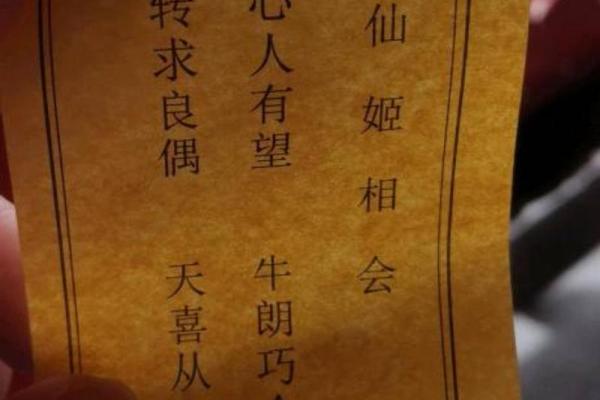 仙姬相会
心人有望 牛朗巧
转求良偶 天喜从